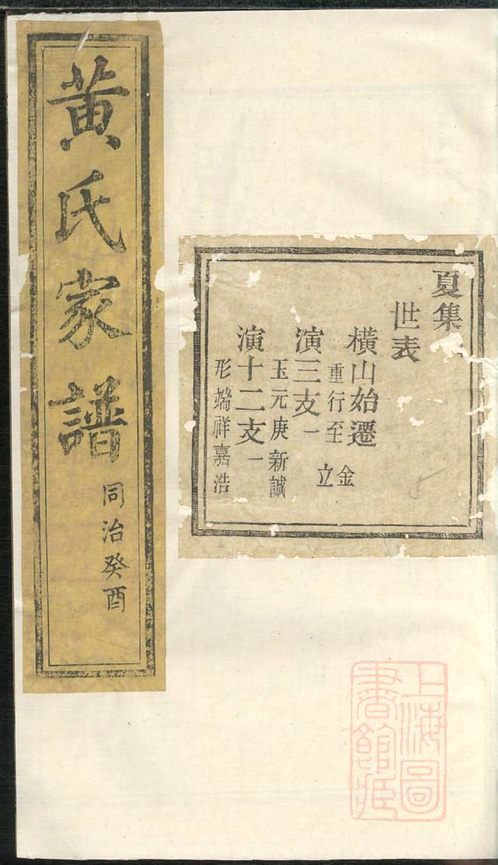 黄氏家譜
同治癸酉
夏集
世表
橫山始遷
重行至金
立
演三支一
玉元庚新誠
演十二支一
形端祥嘉浩
上海圖
書館藏